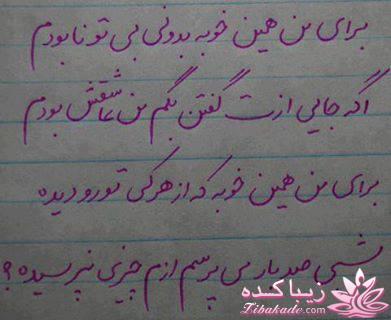 برای من همین خوبه بدونی بی تو نابودم
اگه جایی ازت گفتن بگم من عاشقش بودم
برای من همین خوبه که از هرکی تورو دیده
شبی صد بار می پرسم ازم چیزی نپرسیده؟
زیباکده
Zibakade.com